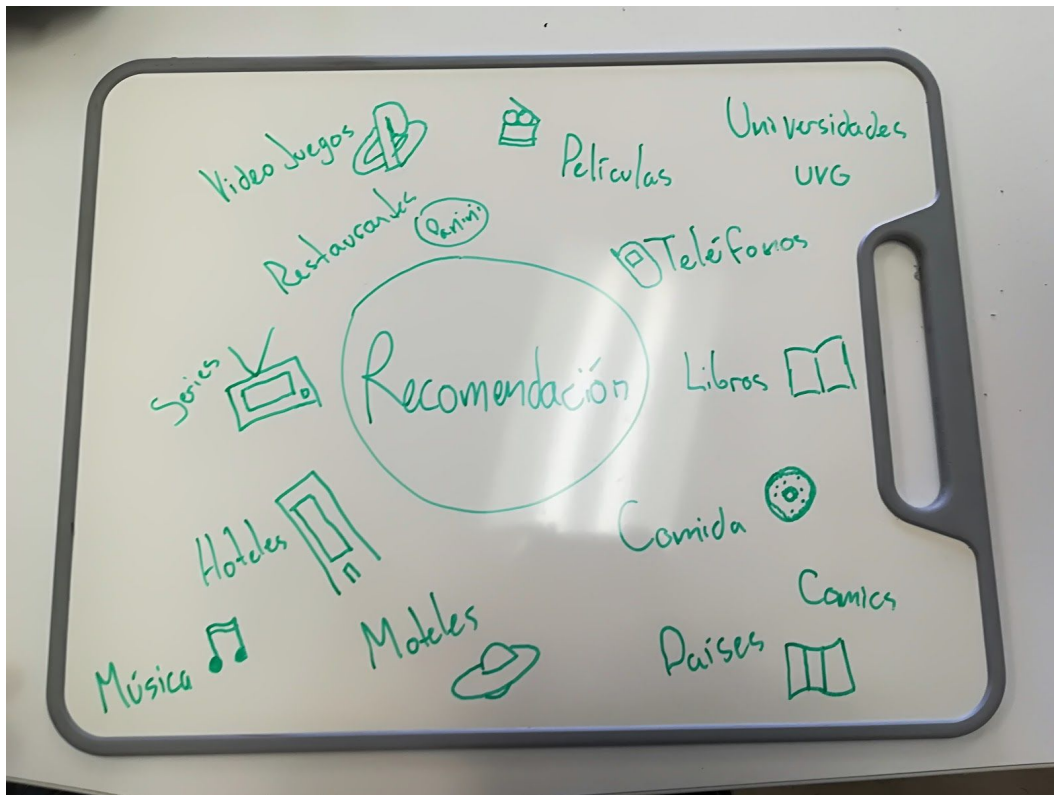 Video Juegos
Películas
Universidades
UVG
Restaurantes
Panini
Teléfonos
Series
Recomendación
Libros
Hoteles
Comida
Comics
Música
Moteles
Países